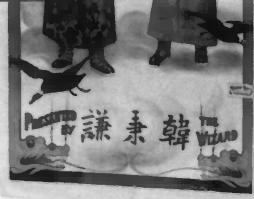 PRESENTED
BY
謙秉韓
THE
WIZARD